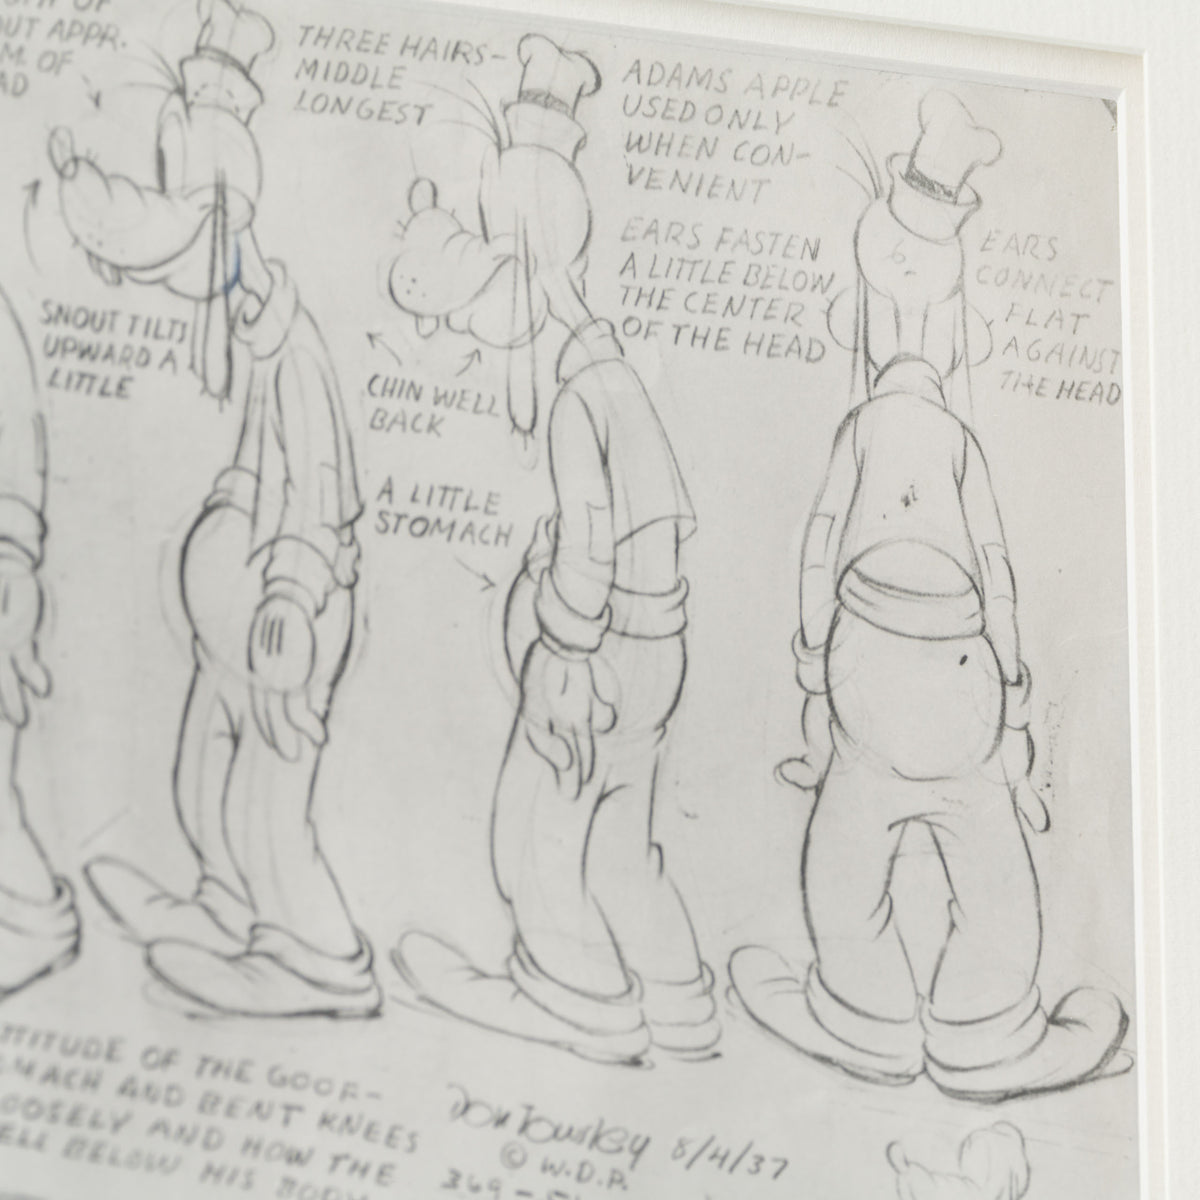 OUT APPR.
M. OF
AD
THREE HAIRS-
MIDDLE
LONGEST
ADAMS APPLE
USED ONLY
WHEN CON-
VENIENT
EARS FASTEN
A LITTLE BELOW
THE CENTER
OF THE HEAD
EARS
CONNECT
FLAT
AGAINST
THE HEAD
SNOUT TILTS
UPWARD A
LITTLE
CHIN WELL
BACK
A LITTLE
STOMACH
TTITUDE OF THE GOOF-
MACH AND BENT KNEES
OOSELY AND HOW THE
ELL BELOW HIS BODY
Don Towsley 8/4/37
© W.D.P.